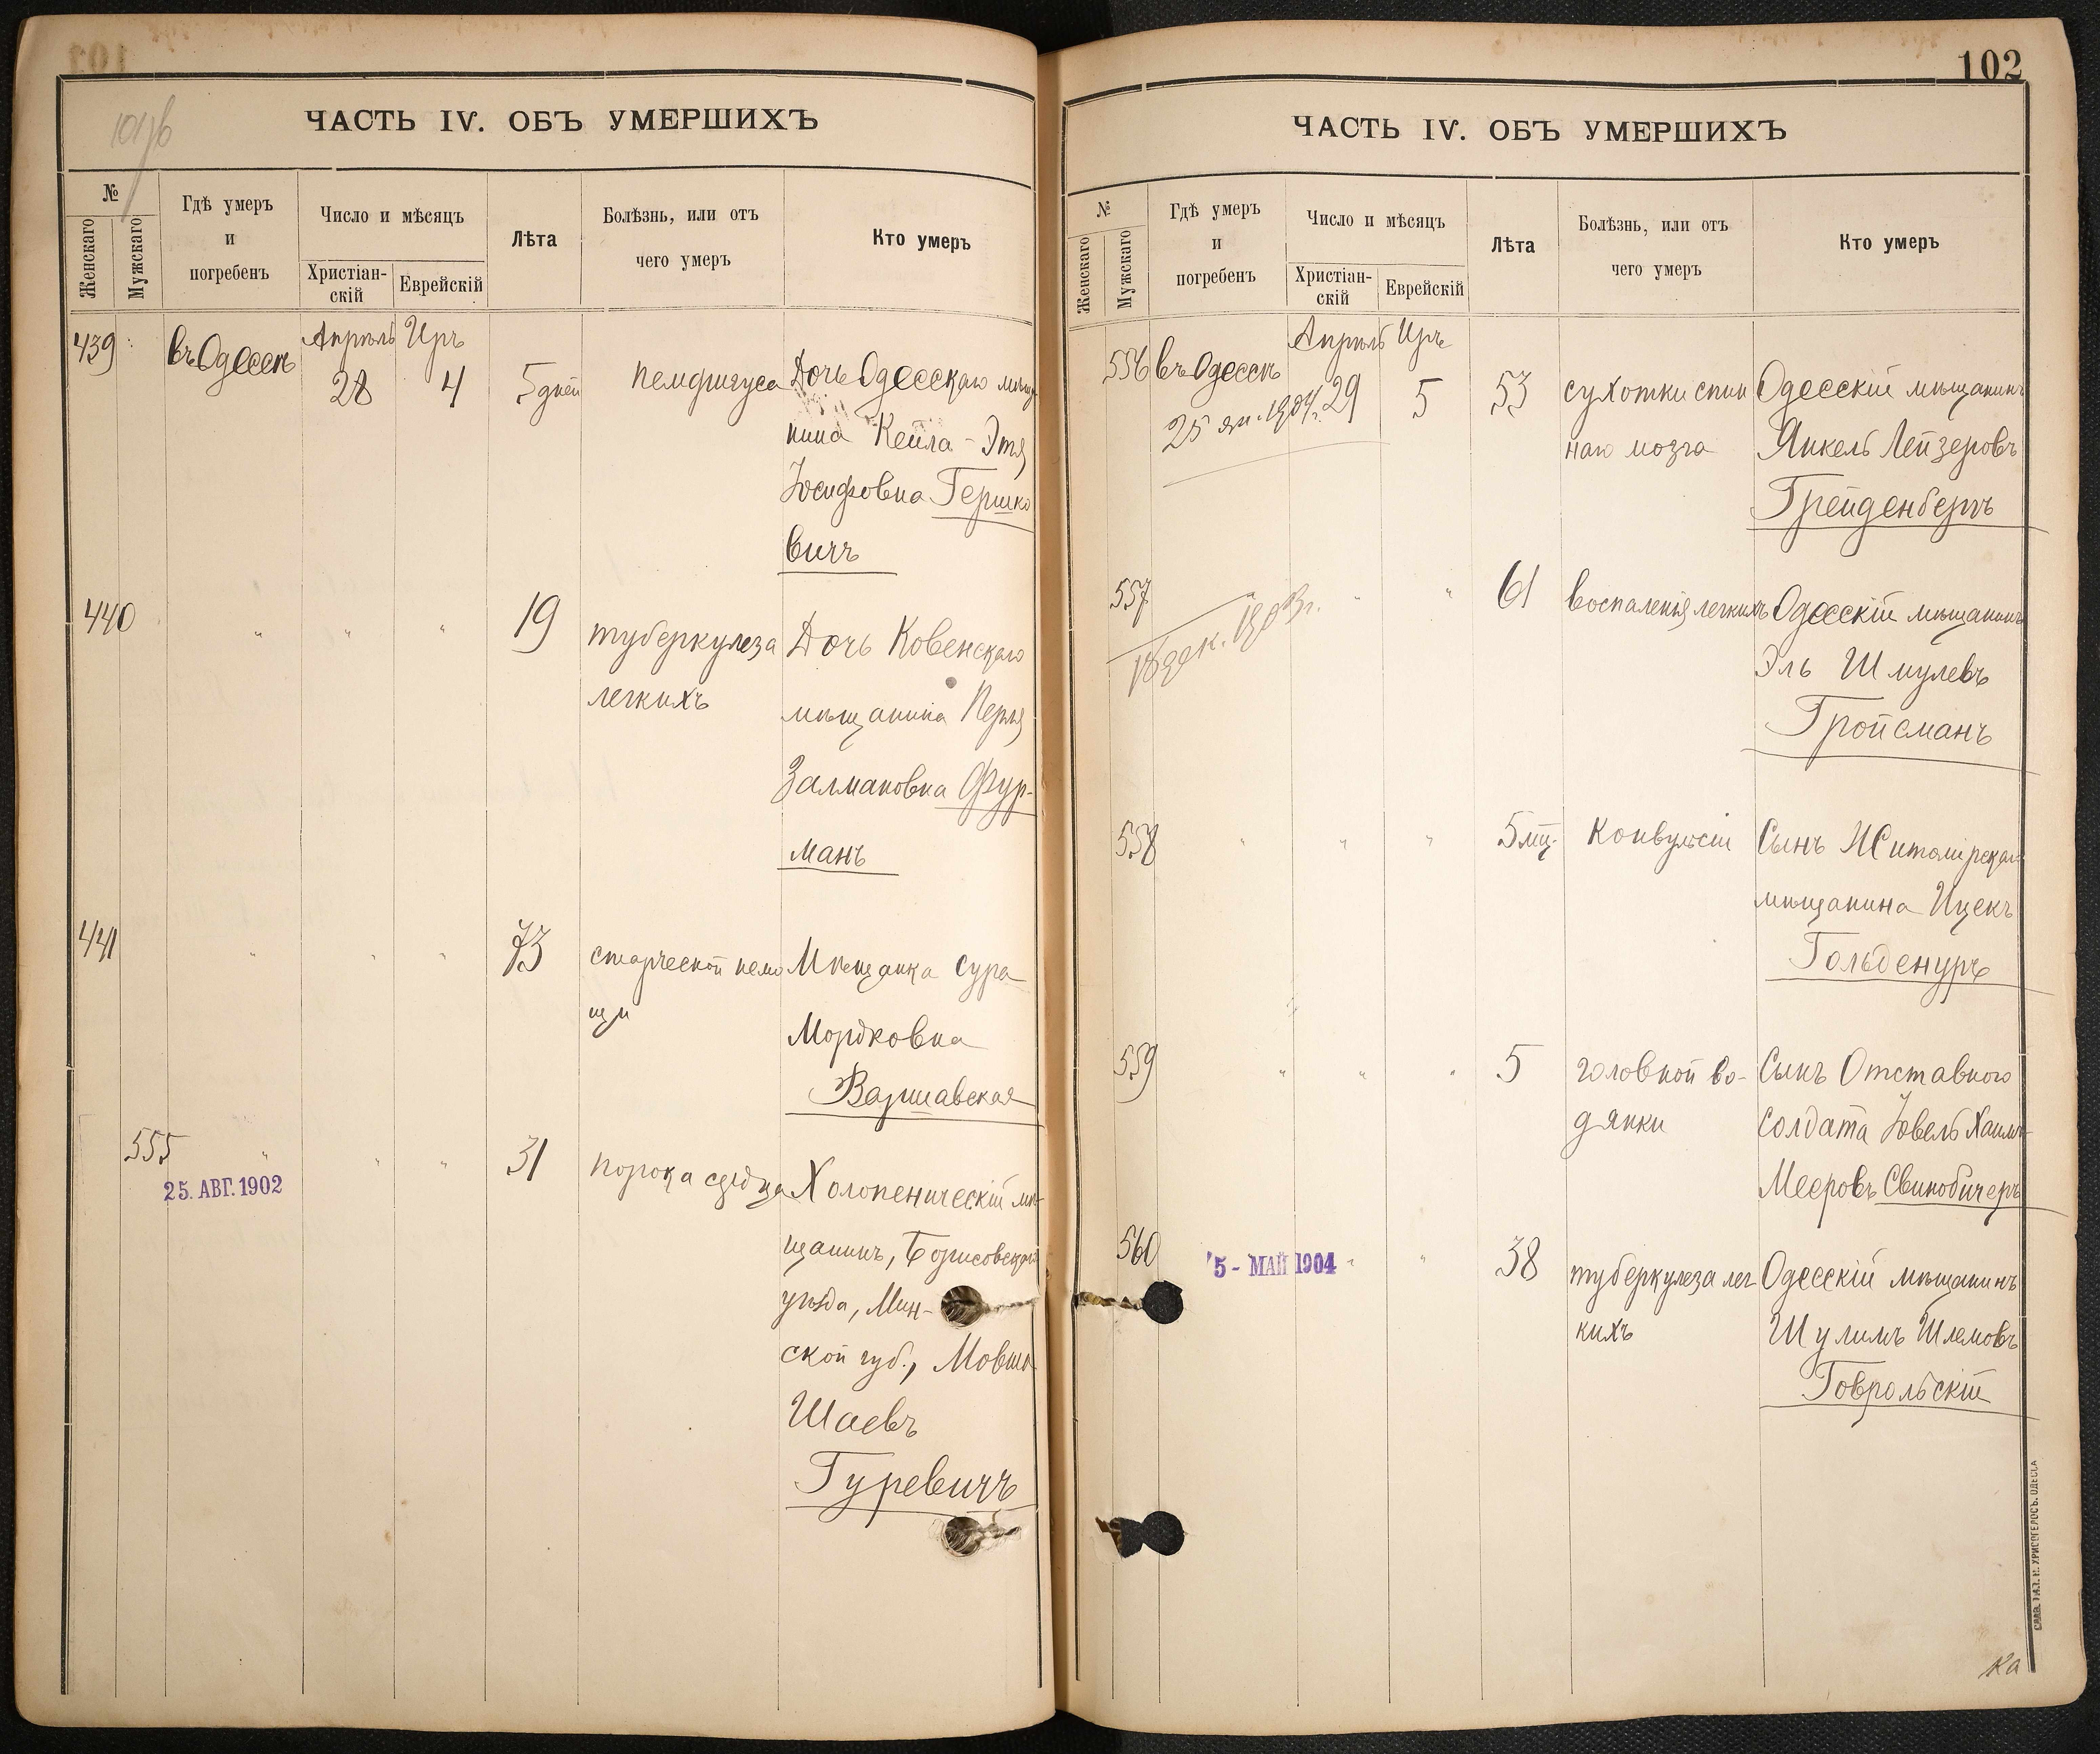 101об
ЧАСТЬ IV. ОБЪ УМЕРШИХЪ
№
Женскаго
Мужскаго
Гдѣ умеръ
и
погребенъ
Число и мѣсяцъ
Христіан-
скій
Еврейскій
Лѣта
Болѣзнь, или отъ
чего умеръ
Кто умеръ
439
въ Одессѣ
Апрѣль Иръ
28 4
5 дней
пемфигуса
Дочь Одесскаго мѣща
нина Кейла-Этя
Іосифовна Гершко
вичъ
440
" " "
19
туберкулеза
легкихъ
Дочь Ковенскаго
мѣщанина Перля
Залмановна Фур-
манъ
441
" " "
73
старческой немо
щи
Мѣщанка Сура
Мордковна
Варшавская
555
" " "
25. АВГ. 1902
31
порока сердца
Холопеническій мѣ-
щанинъ, Борисовскаго
уѣзда, Мин-
ской губ., Мовша
Шаевъ
Гуревичъ
102
ЧАСТЬ IV. ОБЪ УМЕРШИХЪ
№
Женскаго
Мужскаго
Гдѣ умеръ
и
погребенъ
Число и мѣсяцъ
Христіан-
скій
Еврейскій
Лѣта
Болѣзнь, или отъ
чего умеръ
Кто умеръ
556
въ Одессѣ
25 ян. 1904 г.
Апрѣль Иръ
29 5
53
сухотки спин
наго мозга
Одесскій мѣщанинъ
Янкель Лейзеровъ
Грейденбергъ
557
" " "
18 дек. 1903 г.
61
воспаленія легкихъ
Одесскій мѣщанинъ
Эль Шмулевъ
Гройсманъ
558
" " "
5 мц.
Конвульсіи
Сынъ Житомірскаго
мѣщанина Ицекъ
Гольденуръ
559
" " "
5
головной во-
дянки
Сынъ Отставного
солдата Іовель Хаимъ
Мееровъ Свинобичеръ
560
5 - МАЙ 1904
" "
38
туберкулеза лег
кихъ
Одесскій мѣщанинъ
Шулимъ Шлемовъ
Говрольскій
СЛАВ. ТИП. Н. ХРИСОГЕЛОСЪ. ОДЕССА
Ка